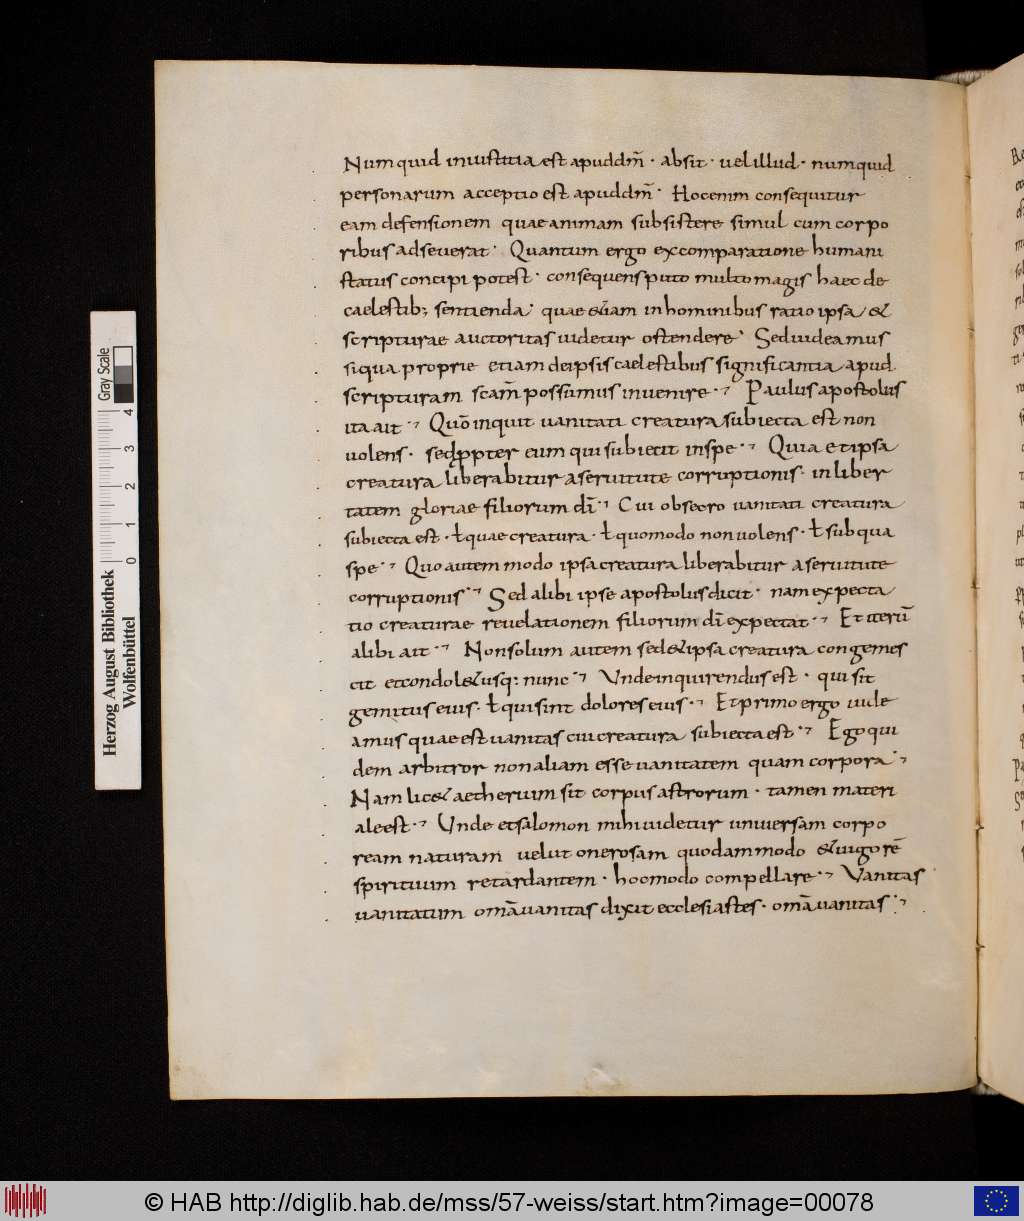 Num quid iniustitia est apud dm̄ · absit · uel illud · numquid
personarum acceptio est apud dm̄ · Hoc enim consequitur
eam defensionem quae animam subsistere simul cum corpo
ribus adseuerat · Quantum ergo ex comparatione humani
status concipi potest · consequens puto multo magis haec de
caelestib; sentienda · quae &iam in hominibus ratio ipsa &
scripturae auctoritas uidetur ostendere · Sed uideamus
si qua proprie etiam de ipsis caelestibus significantia apud
scripturam scam̄ possumus inuenire · Paulus apostolus
ita ait · Quō inquit uanitati creatura subiecta est non
uolens · sed ꝓpter eum qui subiecit in spe · Quia et ipsa
creatura liberabitur a seruitute corruptionis · in liber
tatem gloriae filiorum dī · Cui obsecro uanitati creatura
subiecta est · ł quae creatura · ł quomodo non uolens · ł sub qua
spe · Quo autem modo ipsa creatura liberabitur a seruitute
corruptionis · Sed alibi ipse apostolus dicit · nam expecta
tio creaturae reuelationem filiorum dī expectat · Et iterū
alibi ait · Non solum autem sed & ipsa creatura congemes
cit et condol& usq; nunc · Unde inquirendus est · qui sit
gemitus eius · ł qui sint dolores eius · Et primo ergo uide
amus quae est uanitas cui creatura subiecta est · Ego qui
dem arbitror non aliam esse uanitatem quam corpora ·
Nam lic& aetherium sit corpus astrorum · tamen materi
ale est · Unde et salomon mihi uidetur uniuersam corpo
ream naturam uelut onerosam quodammodo & uigorē
spirituum retardantem · hoc modo compellare · Vanitas
uanitatum omā uanitas dixit ecclesiastes · omā uanitas ·
Herzog August Bibliothek
Wolfenbüttel
Gray Scale
0 1 2 3 4
© HAB http://diglib.hab.de/mss/57-weiss/start.htm?image=00078